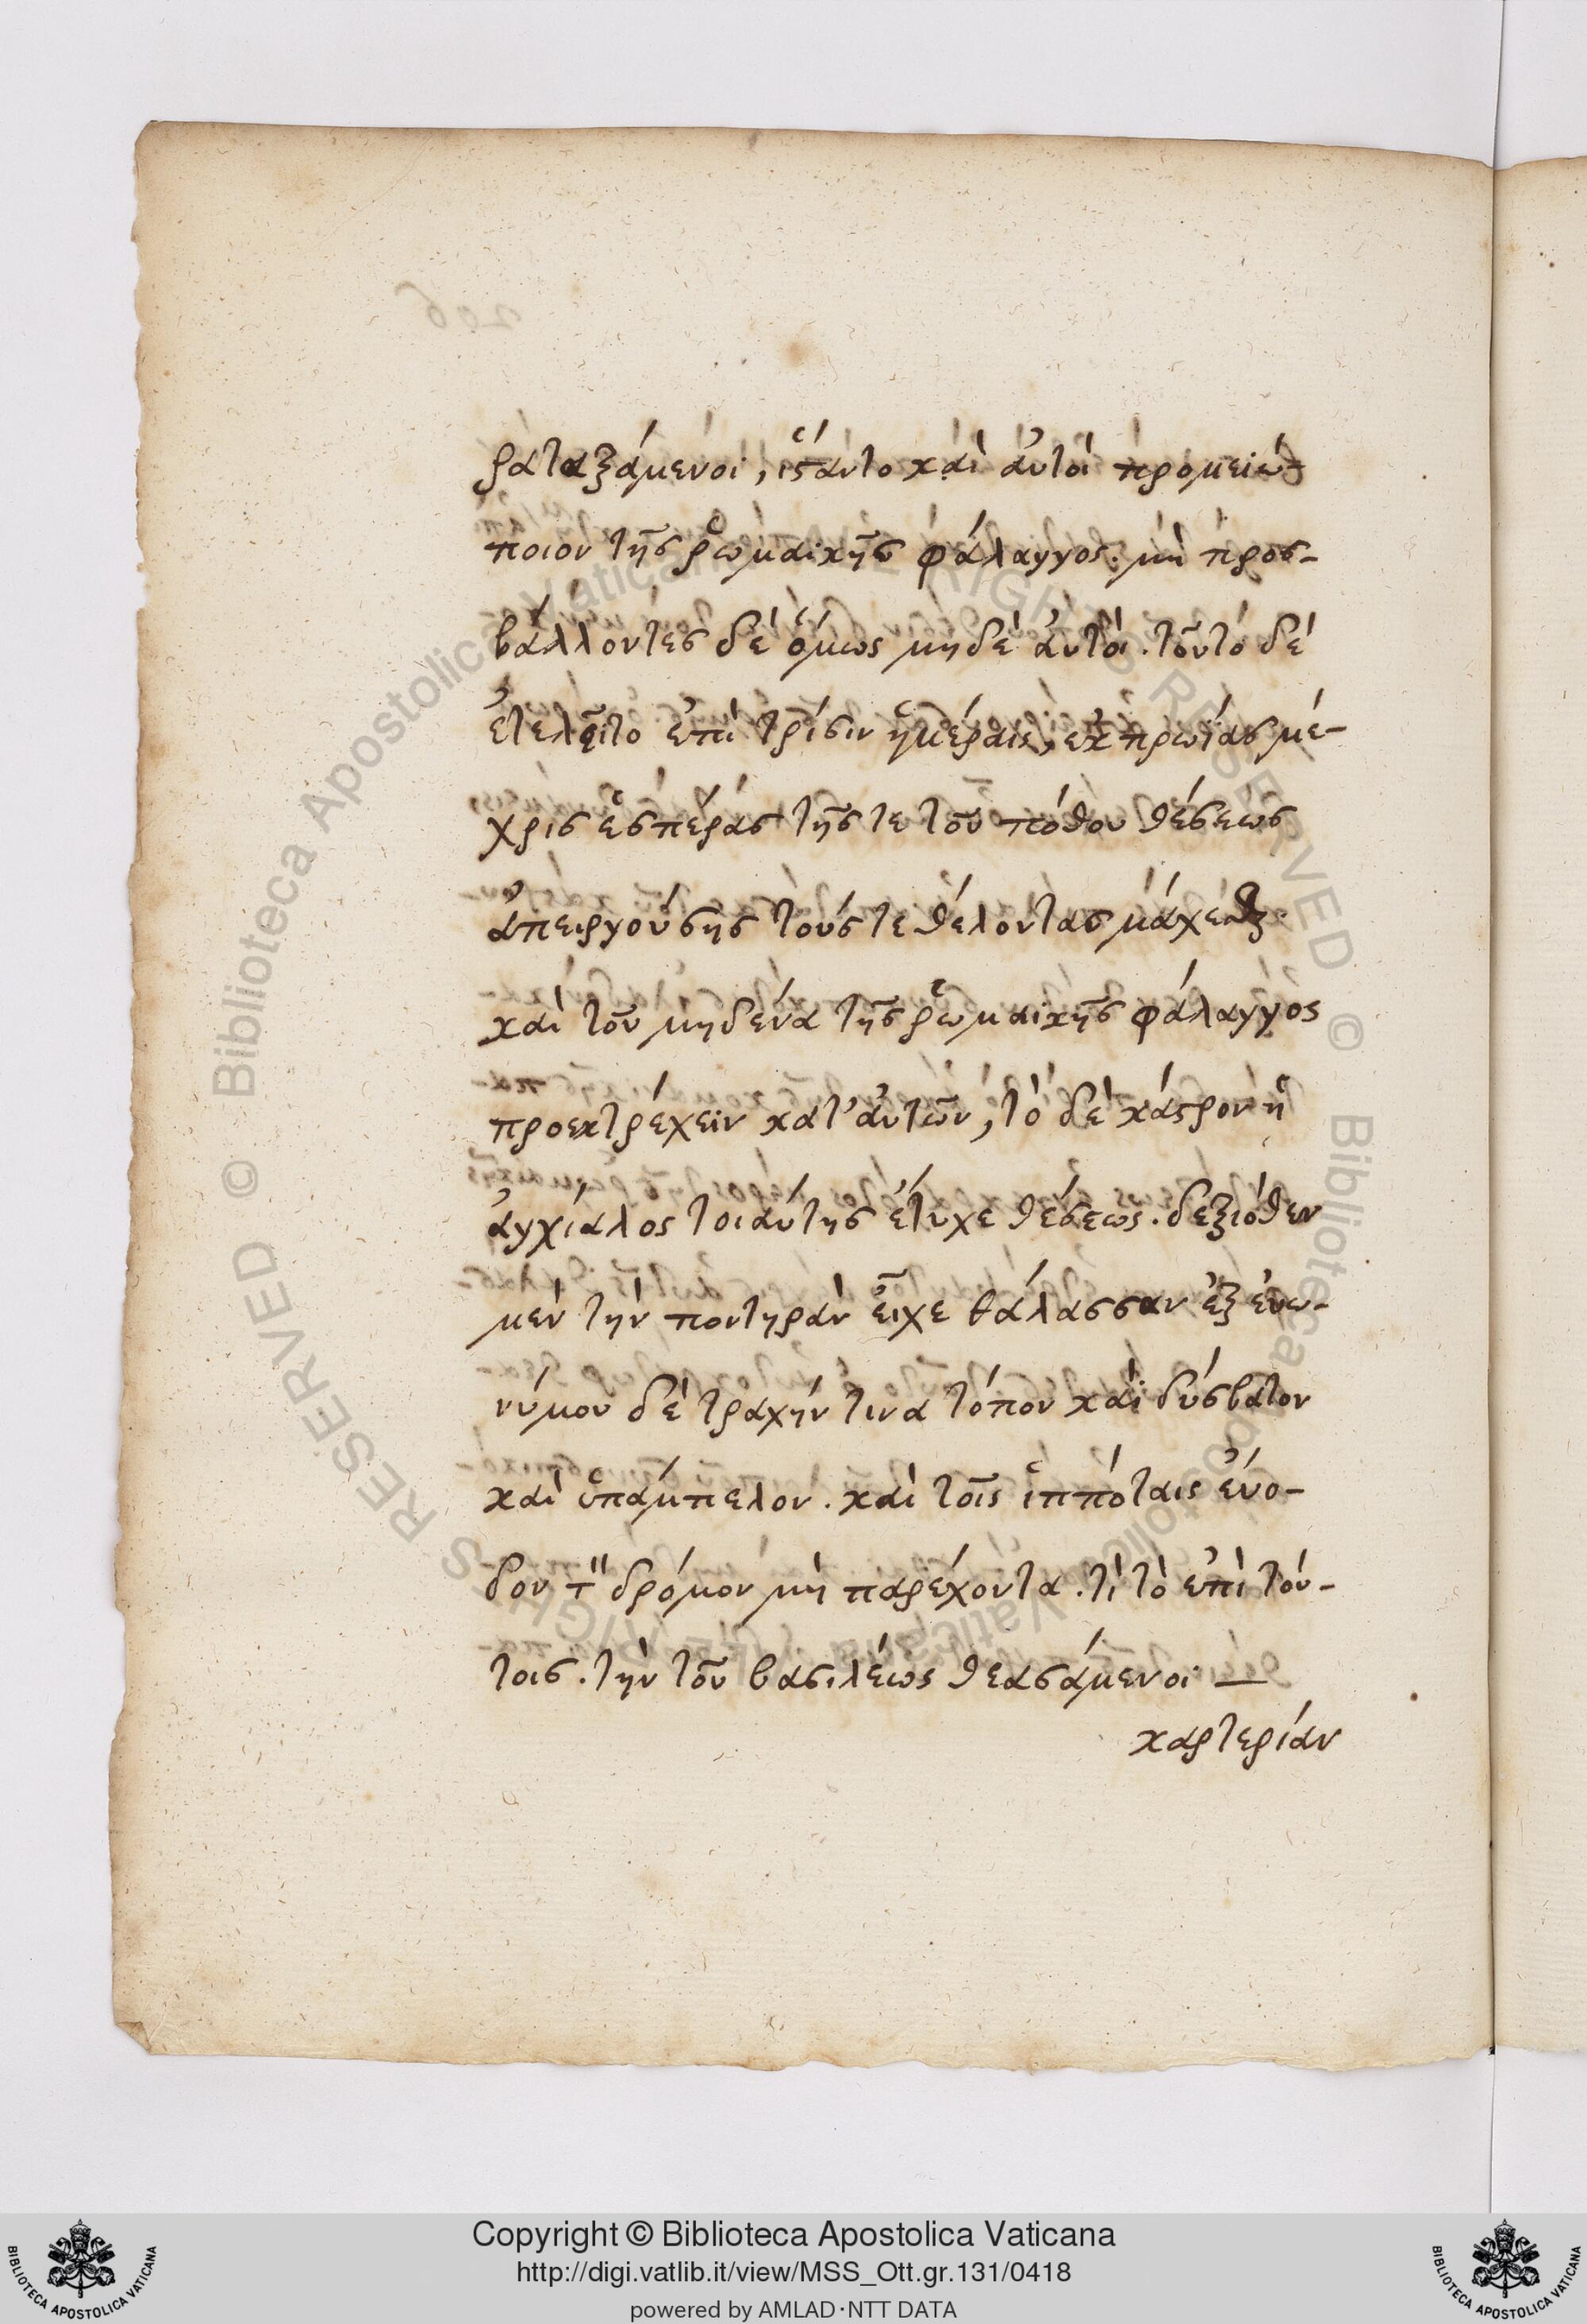 ραταξάμενοι, ἵσταντο καὶ ἀυτοὶ προμετώ-
ποιον τῆς ῥωμαικῆς φάλαγγος. μὴ προσ-
βάλλοντες δὲ ὅμως μηδὲ ἀυτοί. τοῦτο δὲ
ἐτελεῖτο ἐπὶ τρίσιν ἡμέραις, ἐκ πρωΐας μέ-
χρις ἑσπέρας τῆς τε τοῦ πόθου θέσεως
ἀπειργούσης τούς τε θέλοντας μάχεσθαι
καὶ τοῦ μηδένα τῆς ῥωμαικῆς φάλαγγος
προεκτρέχειν κατ' ἀυτῶν, τὸ δὲ κάστρον ἡ
ἀγχίαλος τοιαύτης ἔτυχε θέσεως. δεξιόθεν
μὲν τὴν ποντηρὰν εἶχε θάλασσαν ἐξ ἐυω-
νύμου δὲ τραχήν τινα τόπον καὶ δύσβατον
καὶ ὑπάμπελον. καὶ τοῖς ἱππόταις ἐύο-
δον τ̏ δρόμον μὴ παρέχοντα. τί τὸ ἐπὶ τού-
τοις. τὴν τοῦ βασιλέως θεασάμενοι —
καρτερίαν
Copyright © Biblioteca Apostolica Vaticana
http://digi.vatlib.it/view/MSS_Ott.gr.131/0418
powered by AMLAD·NTT DATA
BIBLIOTECA APOSTOLICA VATICANA
BIBLIOTECA APOSTOLICA VATICANA